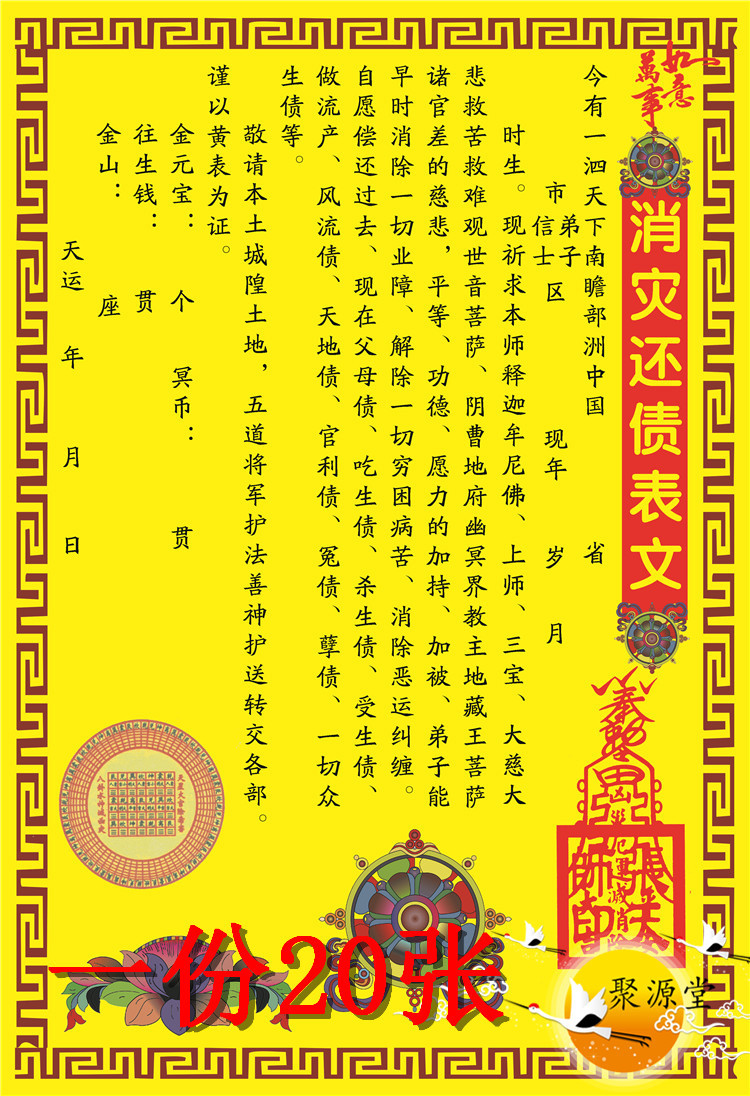 万事如意
消灾还债表文
今有一泗天下南瞻部洲中国 省
市 区 现年 岁 月
弟子
信士
时生。现祈求本师释迦牟尼佛、上师、三宝、大慈大
悲救苦救难观世音菩萨、阴曹地府幽冥界教主地藏王菩萨
诸官差的慈悲,平等、功德、愿力的加持、加被、弟子能
早时消除一切业障、解除一切穷困病苦、消除恶运纠缠。
自愿偿还过去、现在父母债、吃生债、杀生债、受生债、
做流产、风流债、天地债、官利债、冤债、孽债、一切众
生债等。
敬请本土城隍土地,五道将军护法善神护送转交各部。
谨以黄表为证。
金元宝: 个 冥币: 贯
往生钱: 贯
金山: 座
天运 年 月 日
一份20张
聚源堂